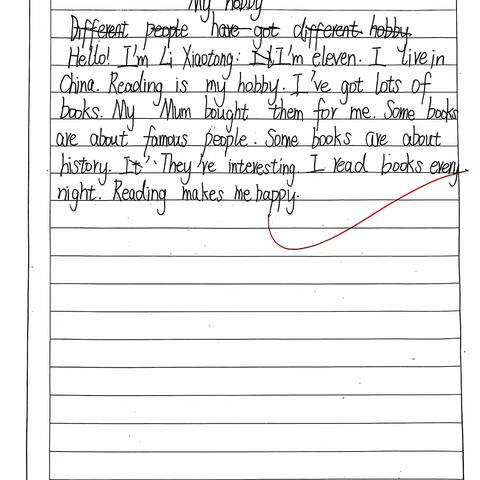 My hobby
Different people have got different hobby.
Hello! I'm Li Xiaotong. I'm eleven. I live in
China. Reading is my hobby. I've got lots of
books. My Mum bought them for me. Some books
are about famous people. Some books are about
history. It' They've interesting. I read books every
night. Reading makes me happy.